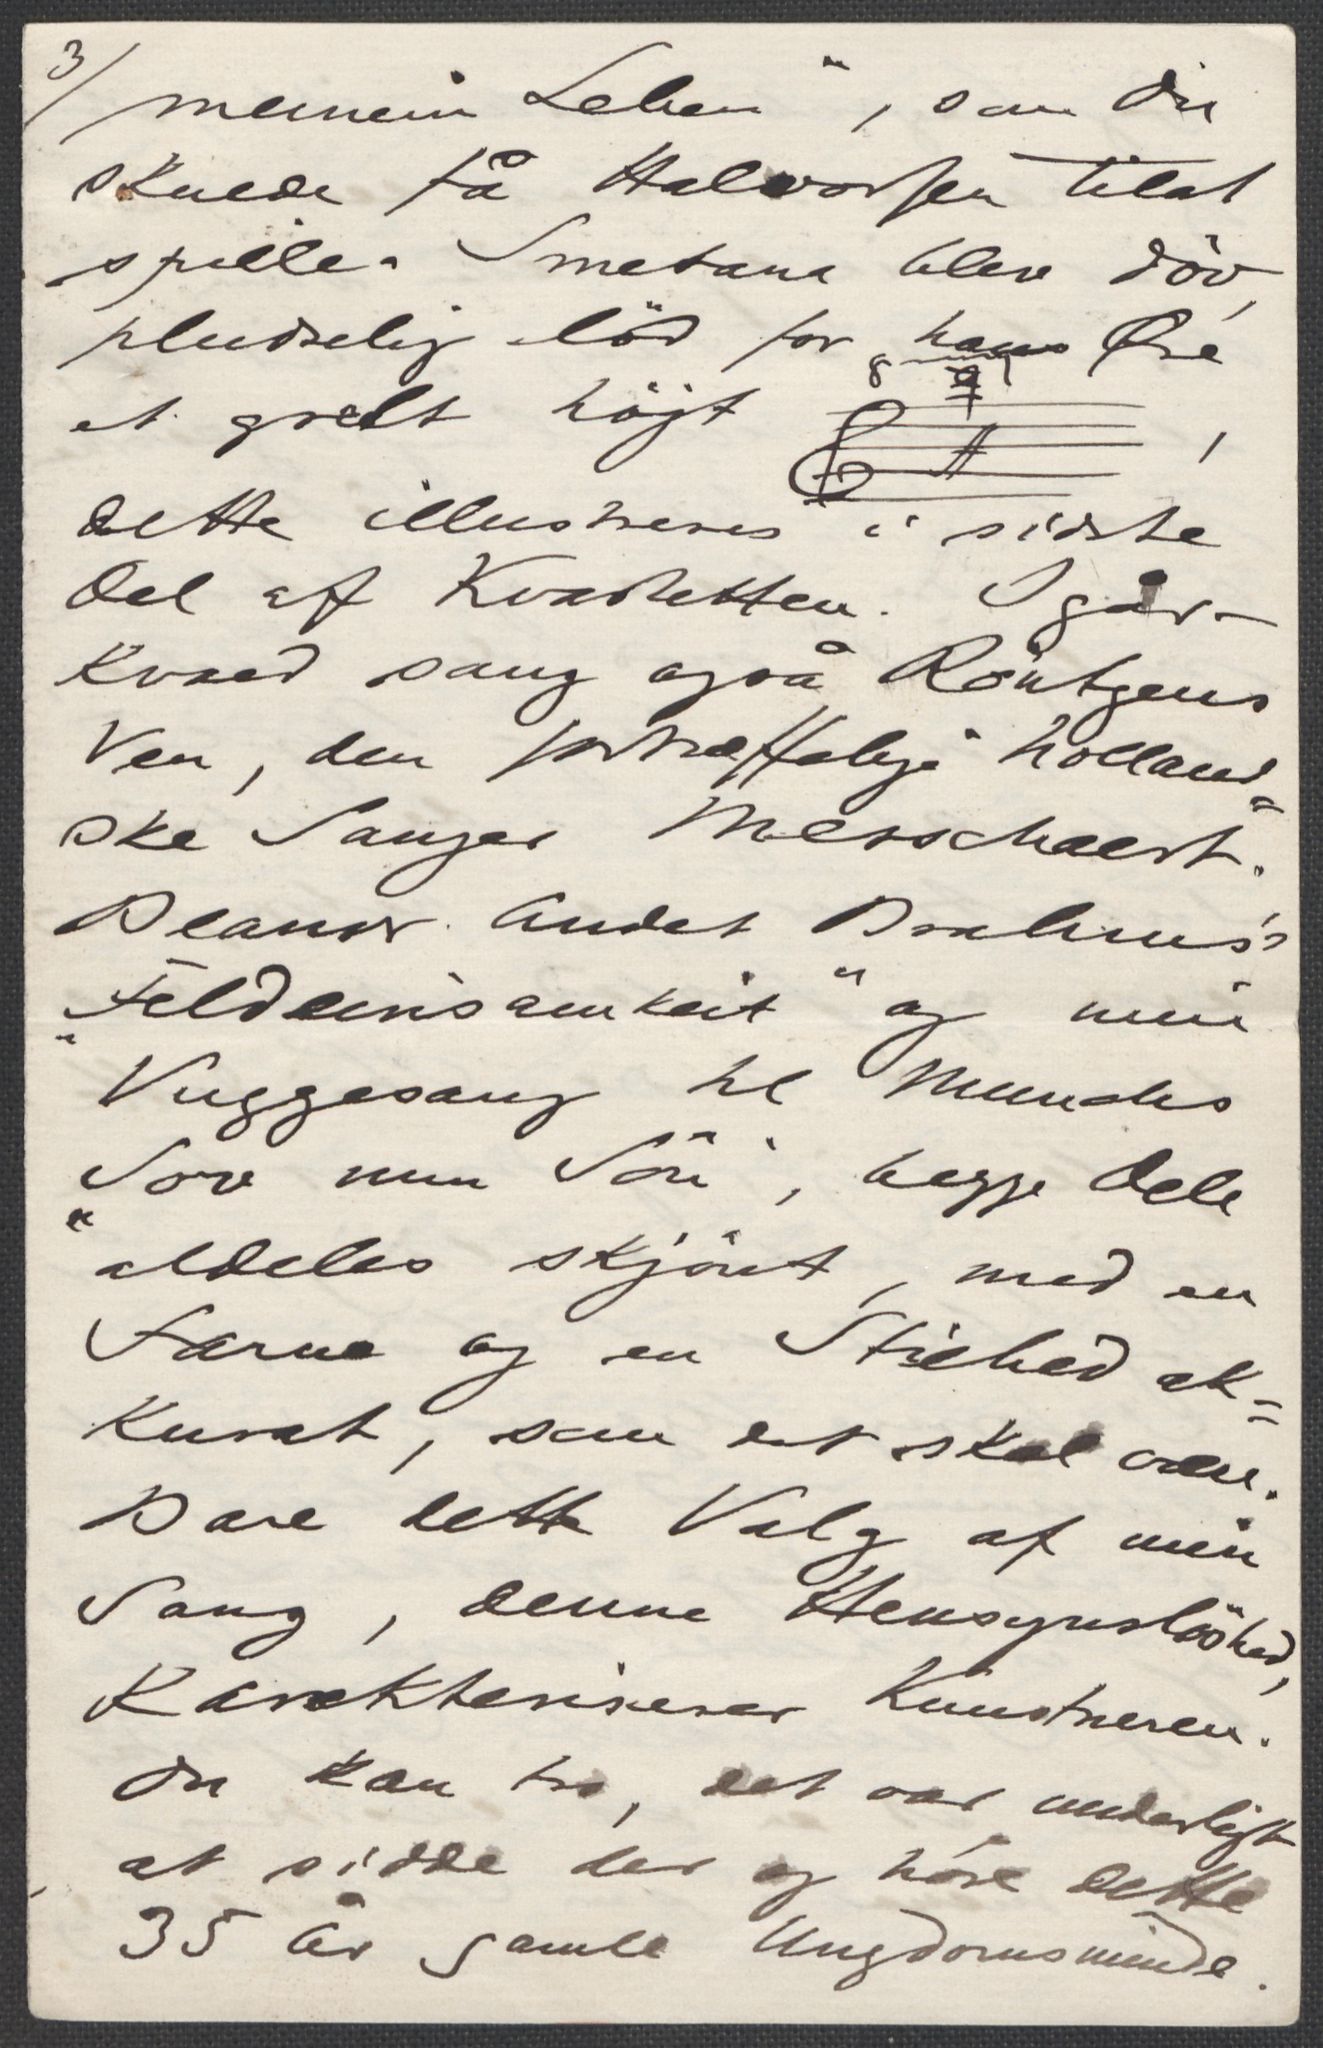 3/
meinem Leben", som Du
skulde få Halvorsen til at
spille. Smetana blev döv,
pludselig löd for hans Øre
et grelt höjt
8
,
dette illustreres i sidste
Del af Kvartetten. Igår-
Kvæld sang også Röntgens
Ven, den fortræffelige holland=
ske Sanger Messchaert.
Blandt Andet Brahms's
"Feldeinsamkeit" og min
Vuggesang til Munchs
"Sov min Sön", begge Dele
aldeles skjönt, med en
Farve og en Stilhed ak=
kurat, som det skal være.
Bare dette Valg af min
Sang, denne Hensynslöshed,
Karakteriserer Kunstneren.
Du kan tro, det var underligt
at sidde der og höre dette
35 År gamle Ungdomsminde.